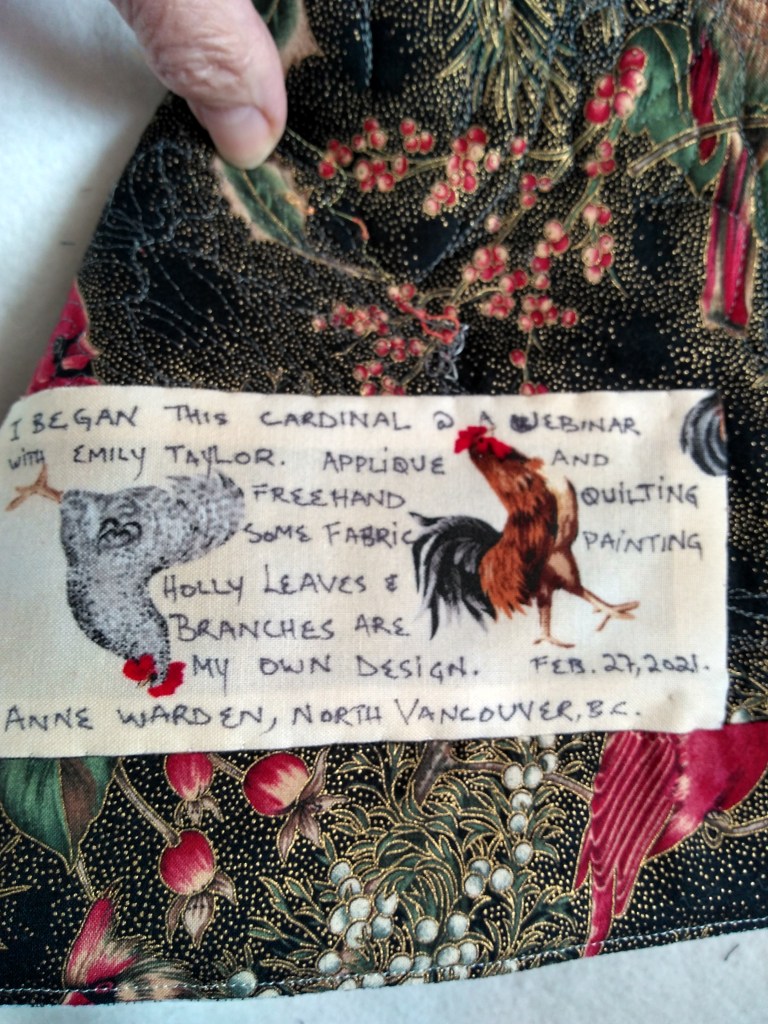 I BEGAN THIS CARDINAL @ A WEBINAR
WITH EMILY TAYLOR. APPLIQUE AND
FREEHAND QUILTING
SOME FABRIC PAINTING
HOLLY LEAVES &
BRANCHES ARE
MY OWN DESIGN. FEB. 27, 2021.
ANNE WARDEN, NORTH VANCOUVER, B.C.